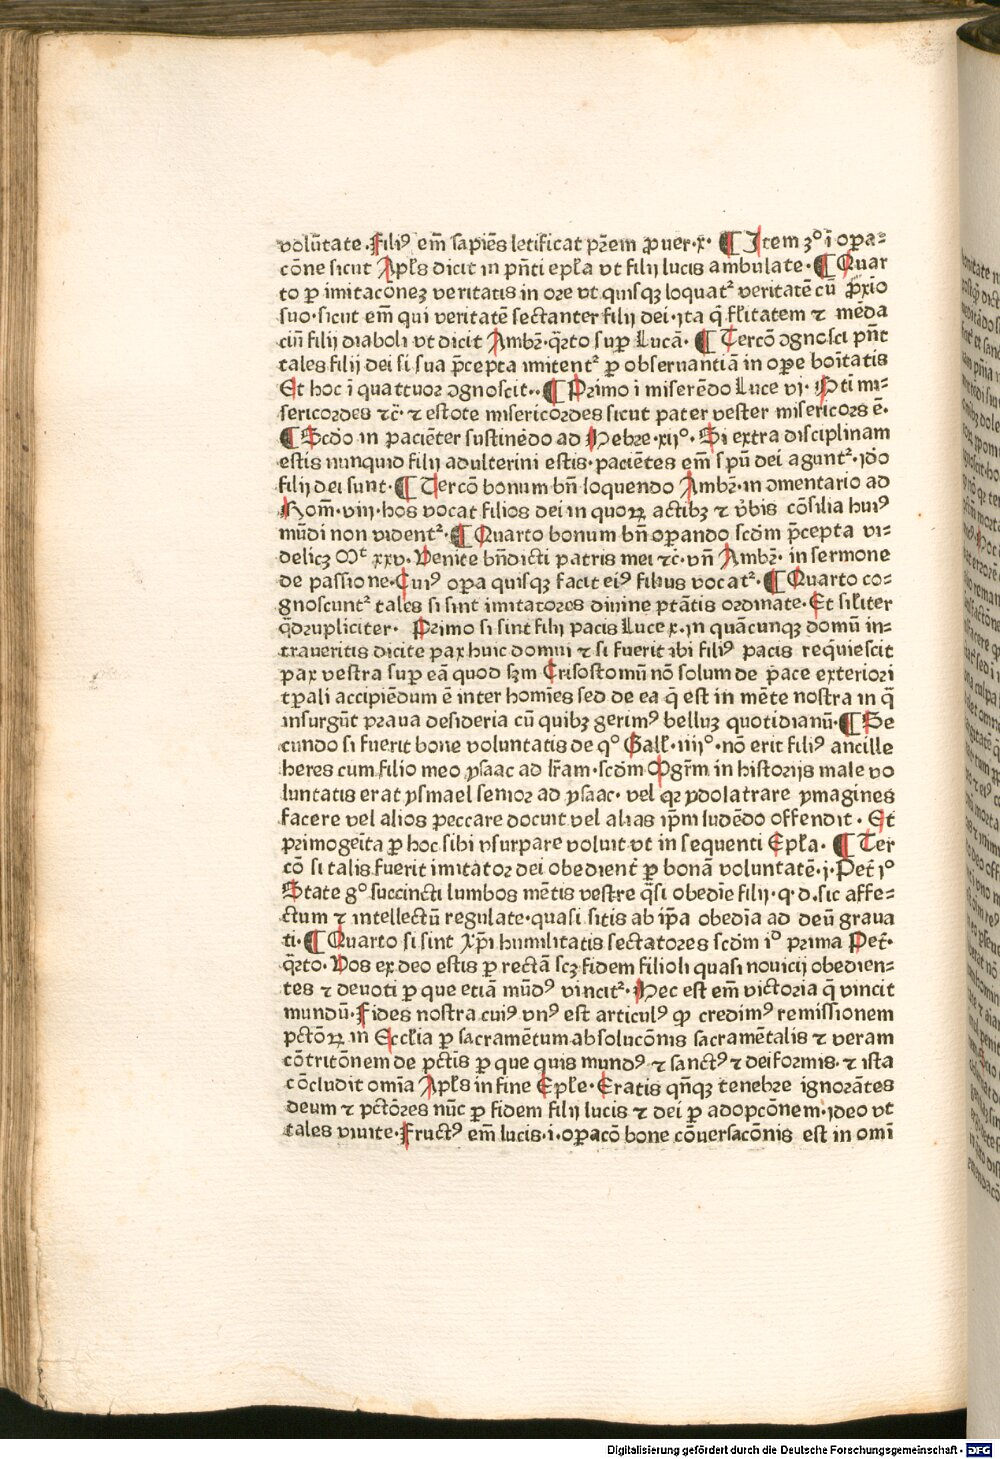 volūtate. Filiꝰ em̄ sapiēs letificat pr̄em ꝓuer·x· ¶ Item 3° ī oꝑa⸗
cōne sicut Apl̄s dicit in pn̄ti epl̄a vt filij lucis ambulate· ¶ Quar
to ꝑ imitacōneꝫ veritatis in ore vt quisqꝫ loquat᷑ veritatē cū ꝓxīo
suo·sicut em̄ qui veritatē sectanter filij dei·ita q̄ fl̄itatem ⁊ mēda
ciū filij diaboli vt dicit Ambꝛ̄·q̄rto suꝑ Lucā· ¶ Tercō ꝯgnosci pn̄t
tales filij dei si sua p̄cepta imitent᷑ ꝑ obseruantiā in oꝑe boītatis
Et hoc ī quattuoꝛ ꝯgnoscit·· ¶ Primo ī miserēdo Luce vj· Hti mi⸗
sericoꝛdes ⁊c̄· ⁊ estote misericoꝛdes sicut pater vester misericoꝛs ē·
¶ Scd̄o in paciēter sustinēdo ad Hebre·xij°· Si extra disciplinam
estis nunquid filij adulterini estis·paciētes em̄ spū dei agunt᷑·ido
filij dei sunt· ¶ Tercō bonum bn̄ loquendo Ambꝛ̄·in ꝯmentario ad
Rom̄·viij·hos vocat filios dei in quoꝝ actibꝫ ⁊ v̄bis cōsilia huiꝰ
mūdi non vident᷑· ¶ Quarto bonum bn̄ oꝑando scd̄m p̄cepta vi⸗
delicꝫ Mt xxv· Venite bn̄dicti patris mei ⁊c̄·vn̄ Ambꝛ̄· in sermone
de passione·Cuiꝰ oꝑa quisqꝫ facit eiꝰ filius vocat᷑· ¶ Quarto co⸗
gnoscunt᷑ tales si sint imitatoꝛes diuine ptātis oꝛdinate·Et sil̄iter
q̄dꝛupliciter· Primo si sint filij pacis Luce x·in quācunqꝫ domū in⸗
traueritis dicite pax huic domui ⁊ si fuerit ibi filiꝰ pacis requiescit
pax vestra suꝑ eā quod sꝫm Crisostomū nō solum de pace exterioꝛi
tꝑali accipiēdum ē inter homīes sed de ea q̄ est in mēte nostra in q̄
insurgūt pꝛaua desideria cū quibꝫ gerimꝰ belluꝫ quotidianū· ¶ Se
cundo si fuerit bone voluntatis de q° Gall̄·iiij°·nō erit filiꝰ ancille
heres cum filio meo ysaac ad lr̄am·scd̄m Mgr̄m in historijs male vo
luntatis erat ysmael senioꝛ ad ysaac· vel qꝛ ydolatrare ymagines
facere vel alios peccare docuit vel alias ip̄m ludēdo offendit · Et
pꝛimogeīta ꝑ hoc sibi vsurpare voluit vt in sequenti Epl̄a· ¶ Ter
cō si talis fuerit imitatoꝛ dei obedient̄ ꝑ bonā voluntatē·j·Pet̄ i°
State g° succincti lumbos mētis vestre q̄si obedīe filij·q·d·sic affe⸗
ctum ⁊ intellectū regulate·quasi sitis ab ip̄a obedīa ad deū graua
ti· ¶ Quarto si sint xp̄i humilitatis sectatoꝛes scd̄m i° pꝛima Pet̄·
q̄rto· Vos ex deo estis ꝑ rectā scꝫ fidem filioli quasi nouicij obedien⸗
tes ⁊ deuoti ꝑ que etiā mūdꝰ vincit᷑· Hec est em̄ victoꝛia q̄ vincit
mundū·Fides nostra cuiꝰ vnꝰ est articulꝰ ꝙ credimꝰ remissionem
pctōꝝ in Eccl̄ia ꝑ sacramētum absolucōnis sacramētalis ⁊ veram
cōtritōnem de pctīs ꝑ que quis mundꝰ ⁊ sanctꝰ ⁊ deifoꝛmis· ⁊ ista
cōcludit omīa Apl̄s in fine Epl̄e·Eratis qn̄qꝫ tenebre ignoꝛātes
deum ⁊ pctōꝛes nūc ꝑ fidem filij lucis ⁊ dei ꝑ adopcōnem·ideo vt
tales viuite·Fructꝰ em̄ lucis·i·oꝑacō bone cōuersacōnis est in omī
Digitalisierung gefördert durch die Deutsche Forschungsgemeinschaft - DFG